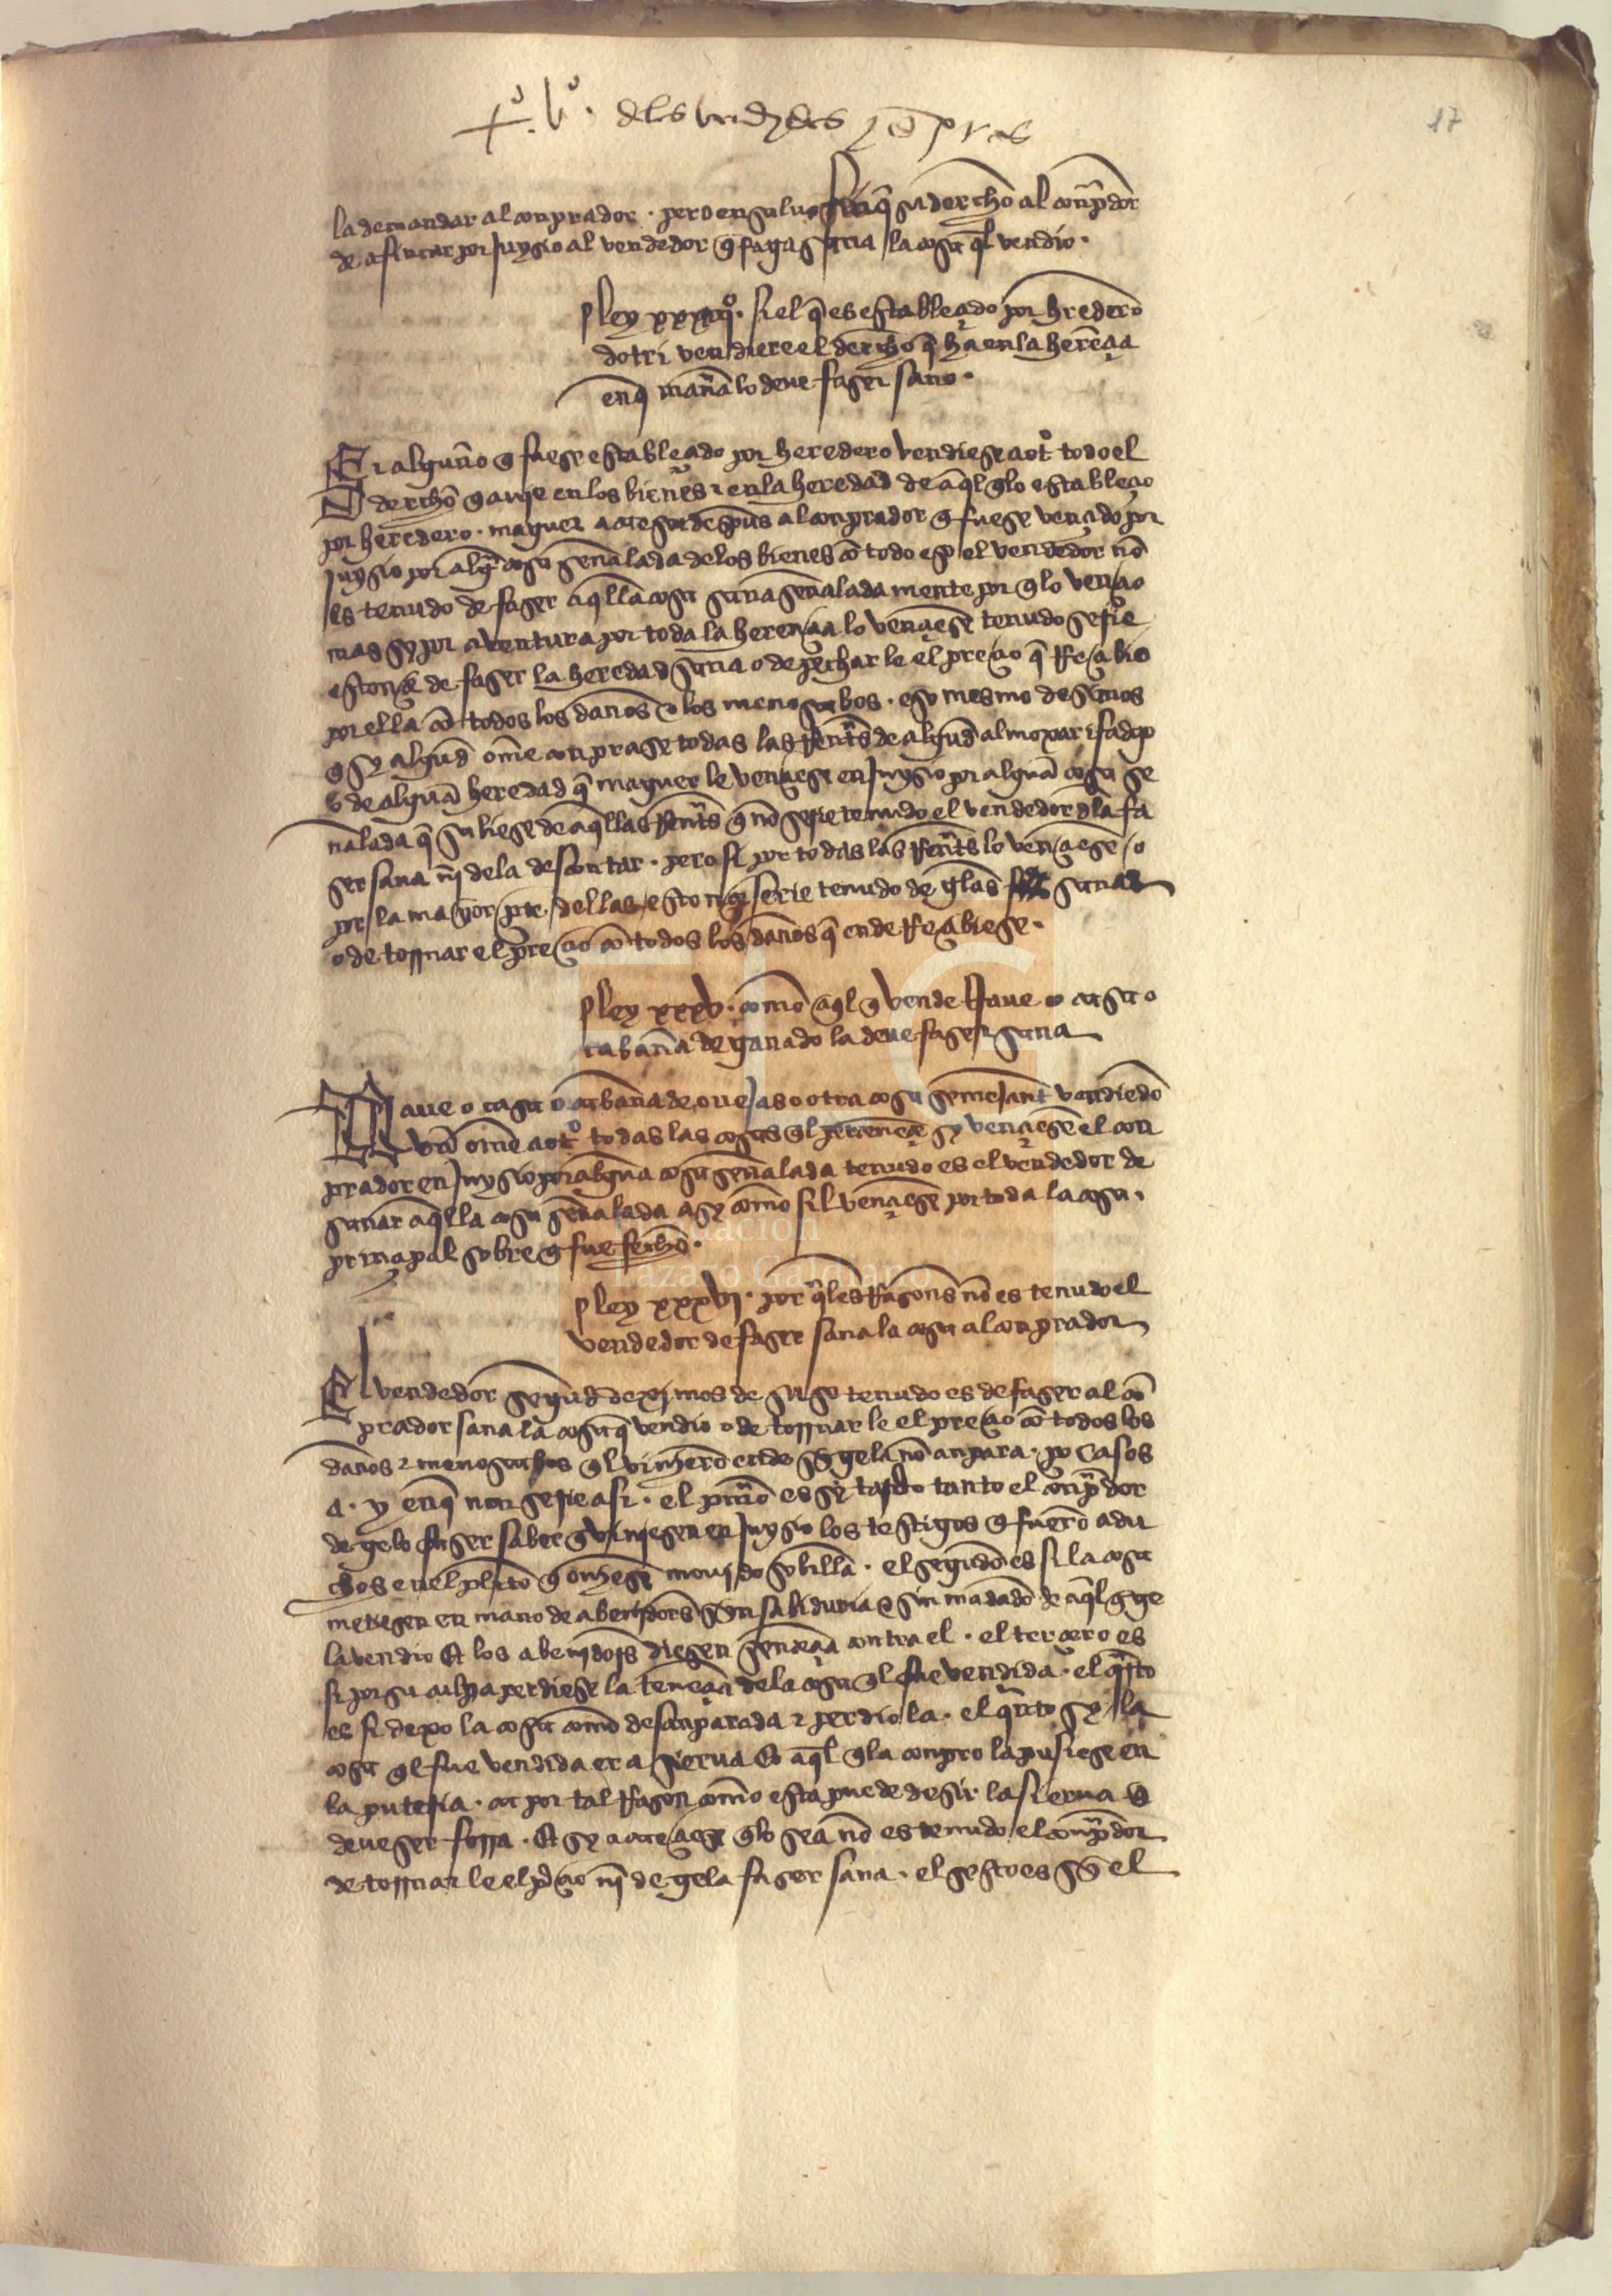 tº vº delas vendidas ⁊ cōpras
17
la demandar al conprador · pero en saluo finq̄ su derecho al conp̄dor
de afincar por juysio al vendedor q̄ faga sana la cosa q̄l vendio ·
ley xxxiiijº · si el q̄ es estableçido por hredero
dotri vendiere el derecho q̄ ha en la herēçia
en q̄ man̄a lo deue faser sano ·
Si alguno q̄ fuese estableçido por heredero vendiese a otº todo el
derecho q̄ auie en los bienes ⁊ en la heredad de aq̄l q̄ lo estableçio
por heredero · maguer acaesca despues al conprador q̄ fuese vençido por
juysio por algª cosa señalada de los bienes cō todo eso el vendedor nō
es tenudo de faser aq̄lla cosa sana señalada mente por q̄ lo vençio
mas sy por aventura por toda la herençia lo vençiesē tenudo serie
estonçe de faser la heredad sana o de pechar le el preçio q̄ Resçibio
por ella cō todos los daños ⁊ los menoscabos · eso mesmo desimos
q̄ sy algund ome conprase todas las Rentas de algund almoxarifadgo
o de alguā heredad q̄ maguer le vençiese en juysio por alguā cosa se
ñalada q̄ saliese de aq̄llas Rentas q̄ nō serie tenudo el vendedor dla fa
ser sana nj̄ dela descontar · pero si por todas las Rentas lo vençiese o
por la mayor pte dellas estonçe serie tenudo de gelas sanar
o de tornar el preçio cō todos los daños q̄ ende Resçibiese ·
ley xxxv · como aq̄l q̄ vende Naue o casa o
cabaña de ganado la deue faser sana
Naue o casa o cabaña de ouejas o otra cosa semejant vendiēdo
vn ome a otº todas las cosas q̄l pertenesçe sy vençiesē el con
prador en juysio por algūa cosa señalada tenudo es el vendedor de
sanar aq̄lla cosa señalada asy como sil vençiesē por toda la cosa ·
prinçipal sobre q̄ fue fecho ·
ley xxxvj · por q̄les Rasones nō es tenudo el
vendedor de faser sana la cosa al conprador
El vendedor segūd deximos de suso tenudo es de faser al cō
prador sana la cosa q̄ vendio o de tornar le el preçio cō todos los
daños ⁊ menoscabos q̄l vinierō ende sy gela nō anpara · po casos
a · y en q̄ non serie asi · el pmº es sy tardo tanto el conp̄dor
de gelo faser saber q̄ viniesen en juysio los testigos q̄ fuerō adu
chos en el pleito q̄ oviesē mouido sobrlla · el segūdo es si la cosa
metiesen en mano de abenidors syn sabiduria ⁊ sin mādado de aq̄l q̄ ge
la vendio Et los abenidors diesen sentēçia contra el · el terçero es
si por su culpa perdiese la tenēçia dela cosa q̄l fue vendida · el qªrto
es si dexo la cosa como desanparada ⁊ perdiola · el quīto sy la
cosa q̄l fue vendida era sierua ⁊ aq̄l q̄ la conpro la pusiese en
la puteria · ca por tal Rason como esta puede desir la sierua q̄
deue ser forra · Et sy acaesçiese q̄ lo sea nō es tenudo el conp̄dor
de tornar le el pçio nj̄ de gela faser sana · el sesto es sy el
Fundación
Lázaro Galdiano